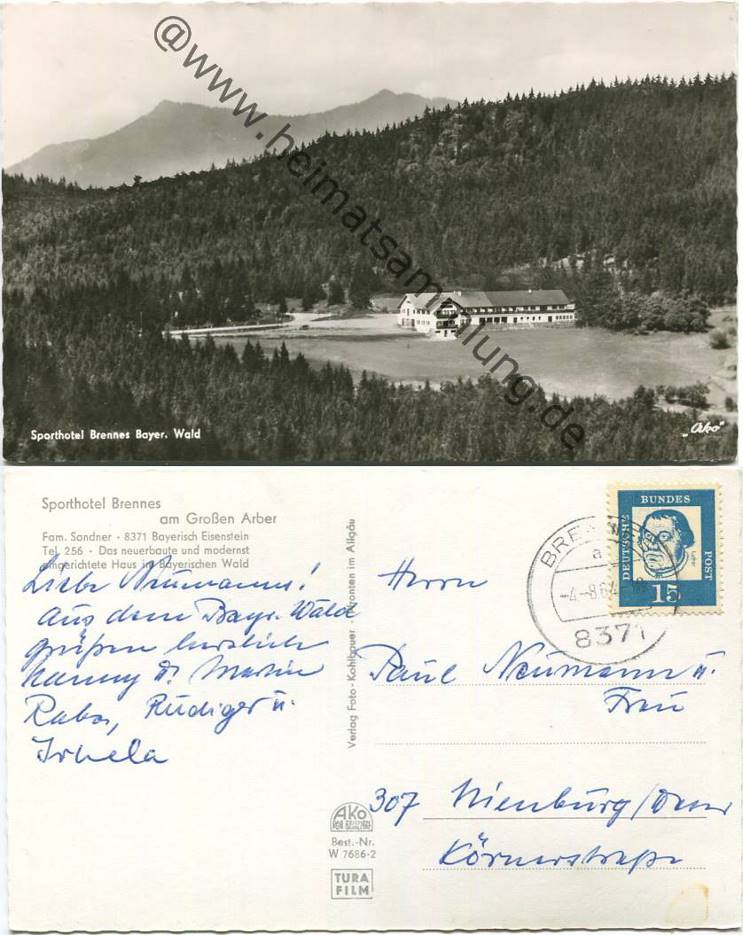 @www.heimatsammlung.de
Sporthotel Brennes Bayer. Wald
„Ako"
Sporthotel Brennes
am Großen Arber
Fam. Sandner · 8371 Bayerisch Eisenstein
Tel. 256 · Das neuerbaute und modernst
eingerichtete Haus im Bayerischen Wald
Liebe Neumanns!
Aus dem Bayr. Wald
grüßen herzlich
Hanny u. Martin
Rabe, Rüdiger u.
Verlag Foto-Kohlbauer · Pfronten im Allgäu
AKO
Best.-Nr.
W 7686-2
TURA
FILM
DEUTSCHE
BUNDES
POST
15
a
-4.-8.64
8371
Herrn
Paul Neumann u.
Frau
307 Nienburg/Weser
Körnerstraße